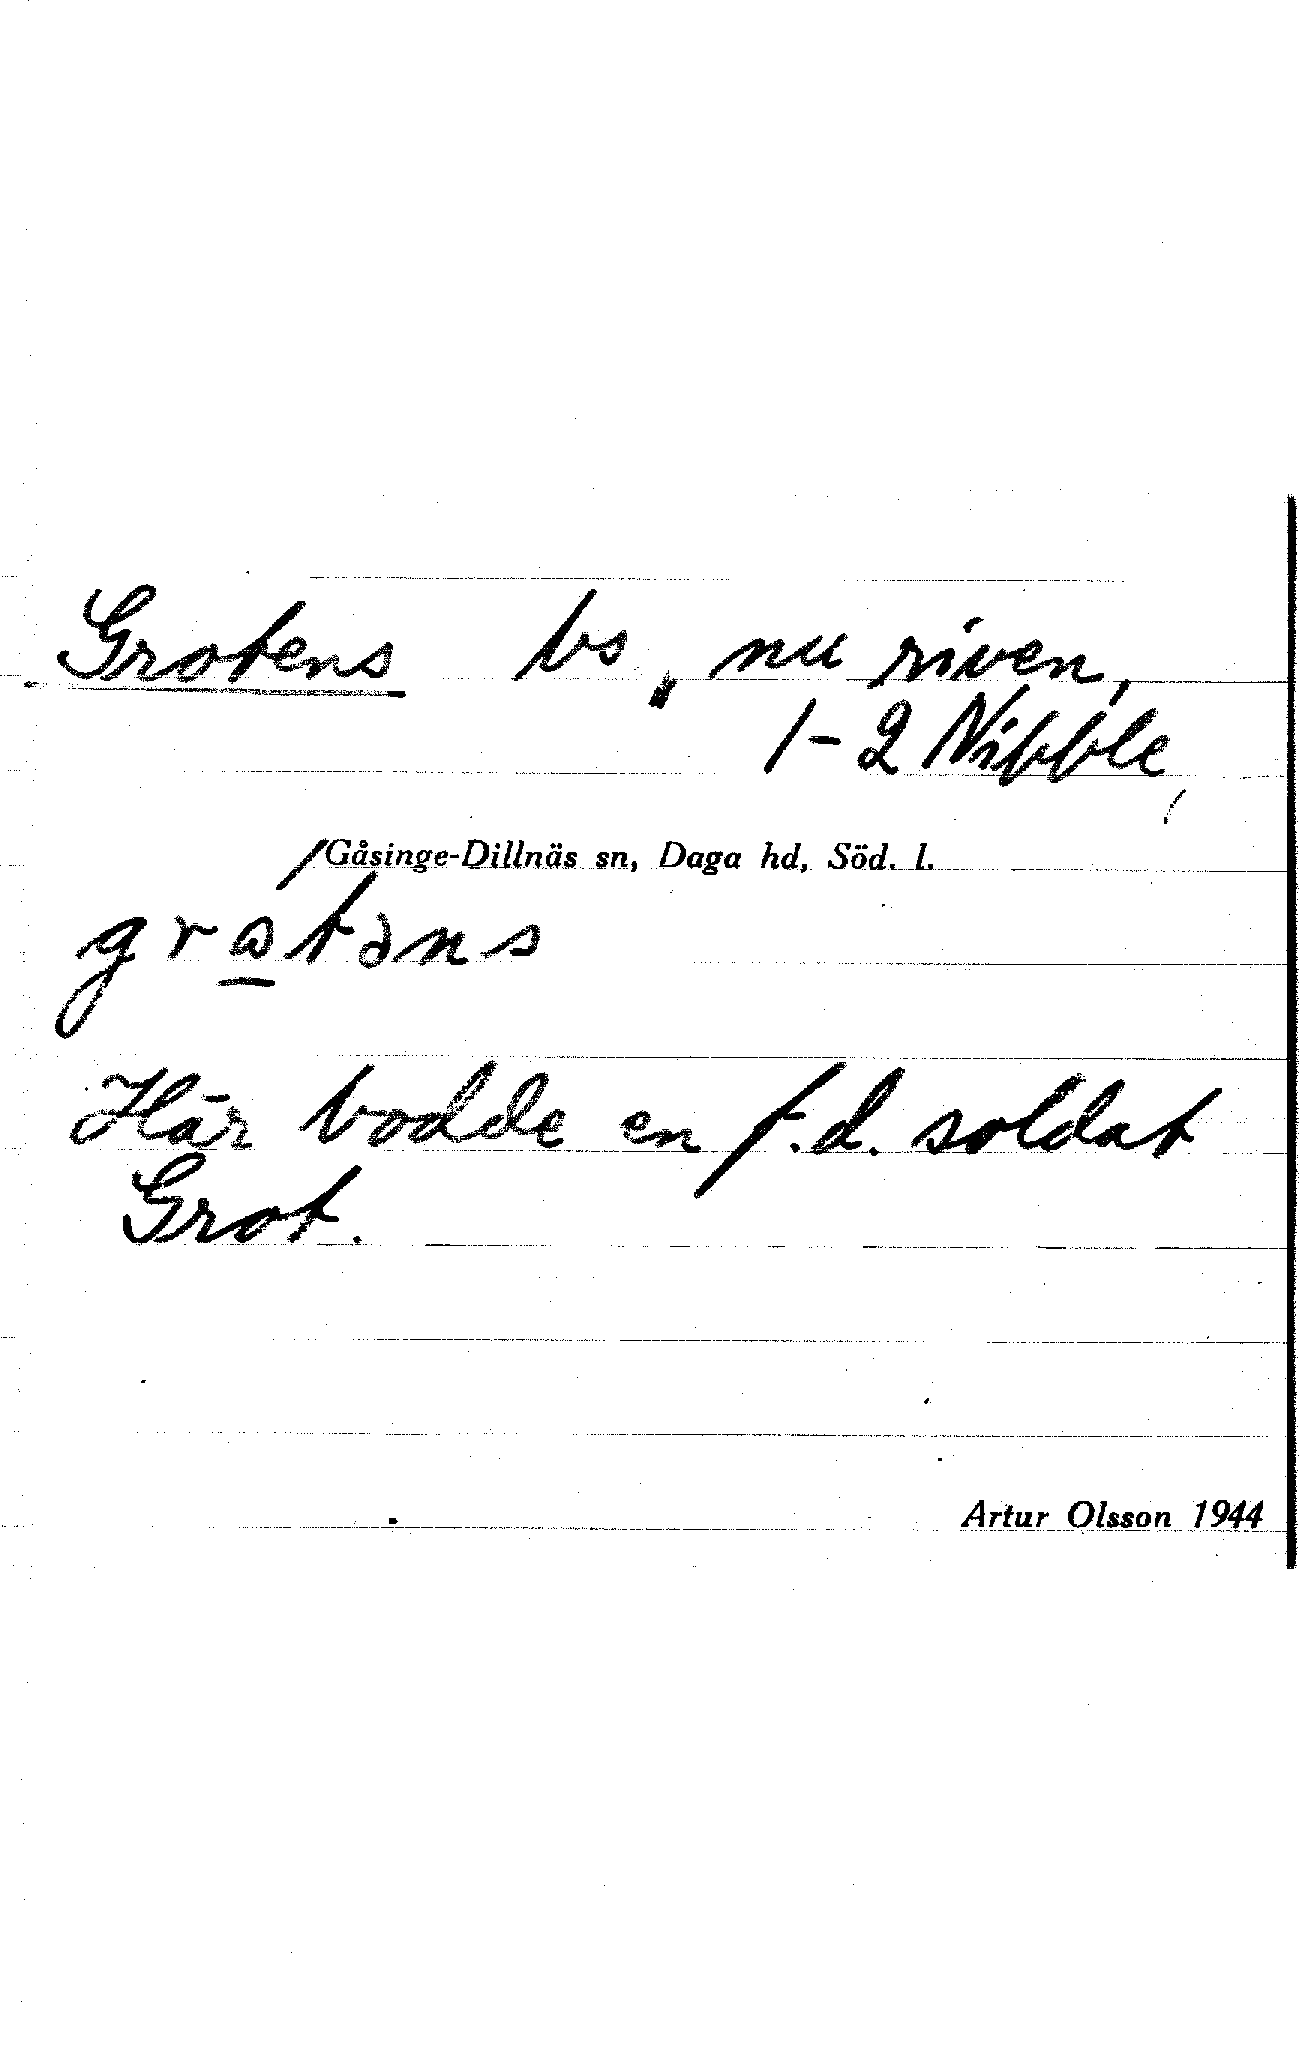 Grotens bs, nu riven,
1-2 Nibble,
Gåsinge-Dillnäs sn, Daga hd, Söd. l.
Här bodde en f.d. soldat
Grot.
Artur Olsson 1944